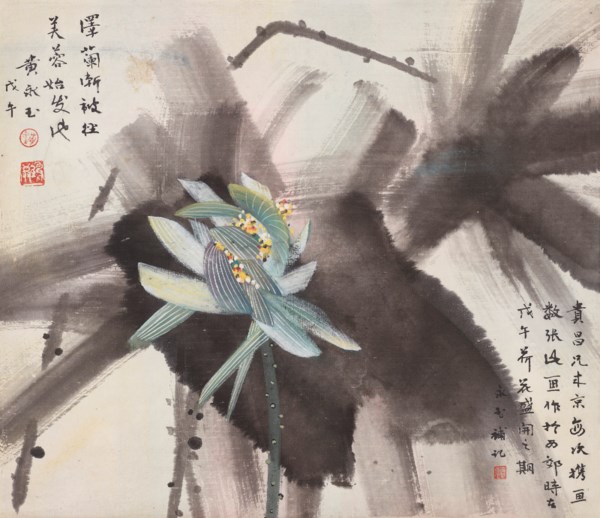 澤蘭漸被径
芙蓉始发池
黄永玉
戊午
貴昌兄来京每次携画
数张此画作於西郊時在
戊午荷花盛開之期
永玉補记